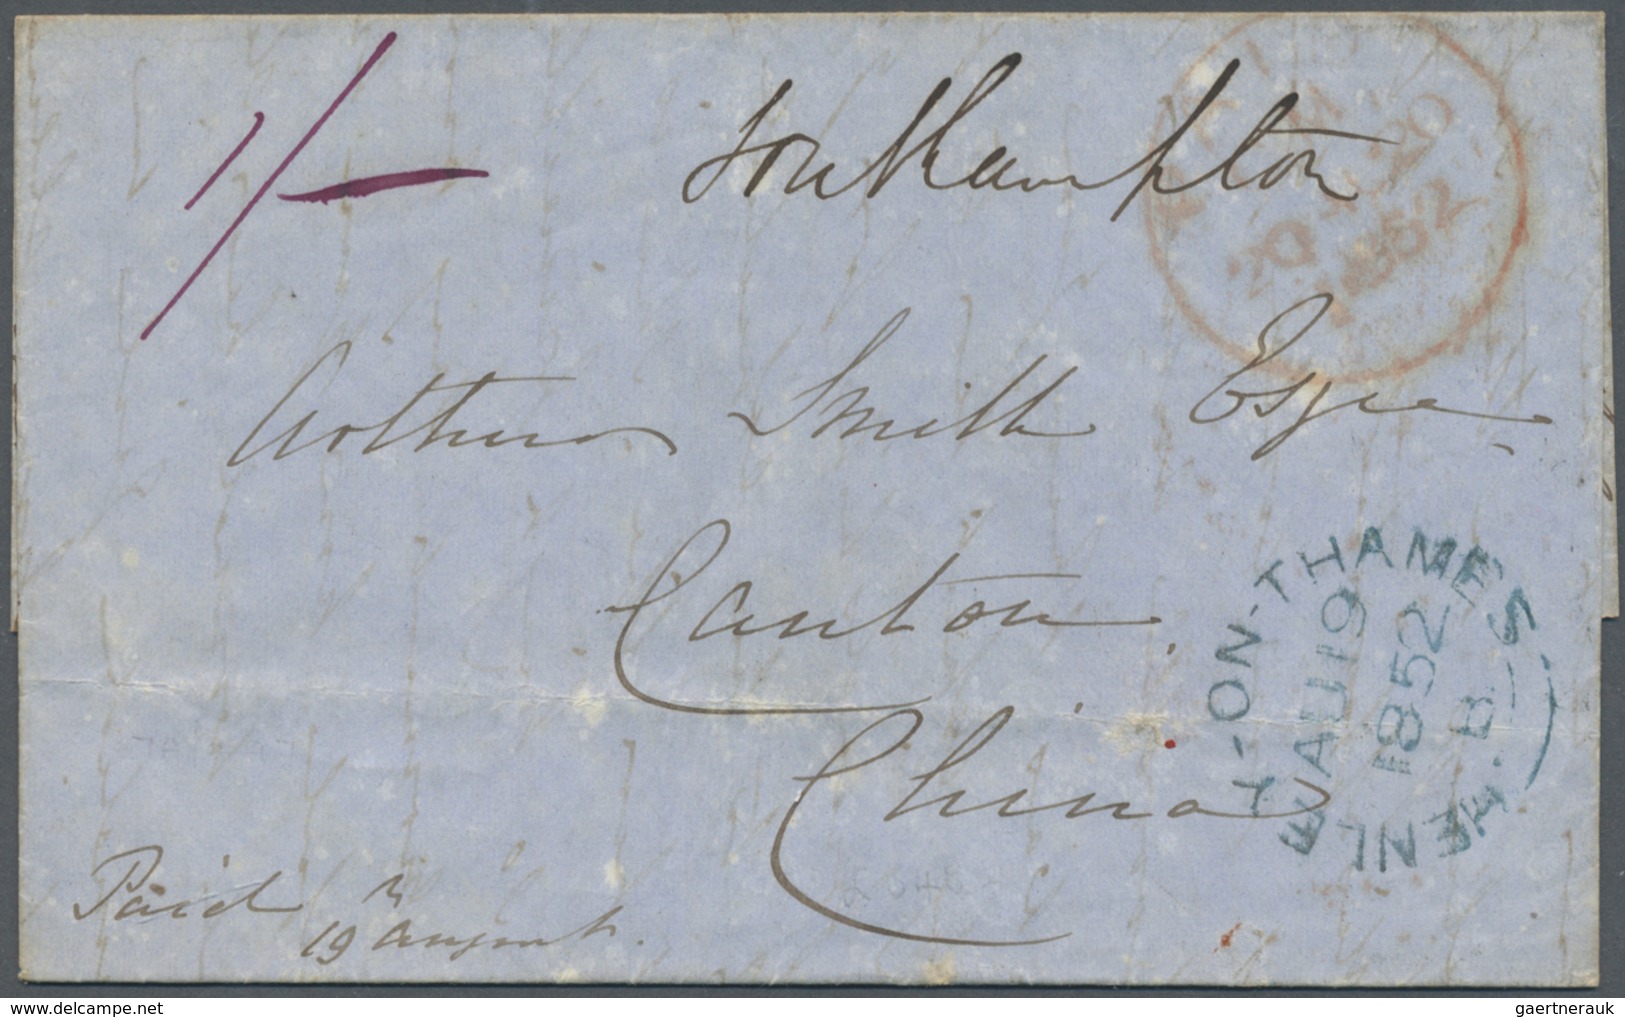 1/-
Southampton
PAID
20 AU 20
1852
Arthur Smith Esqre
Canton
China
HENLEY-ON-THAMES
AU 19
1852
B
Paid
19 August.
gaertnerauk
www.delcampe.net